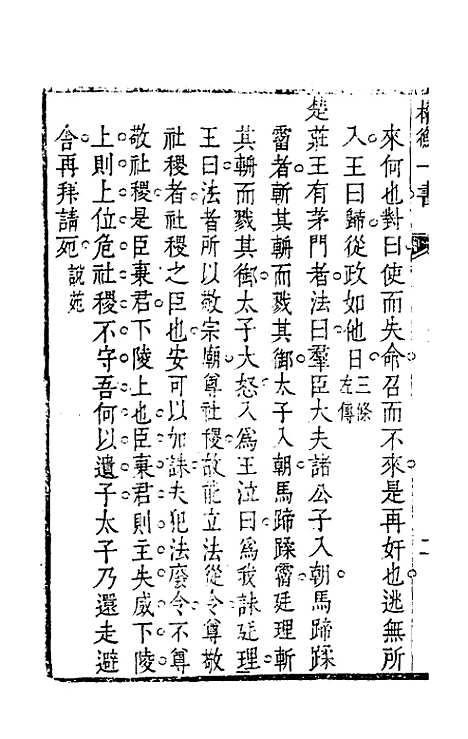 一書
二
來何也對曰使而失命召而不來是再奸也逃無所
入王曰歸從政如他日三條左傳
楚莊王有茅門者法曰羣臣大夫諸公子入朝馬蹄蹂
霤者斬其輈而戮其御太子入朝馬蹄蹂霤廷理斬
其輈而戮其御太子大怒入爲王泣曰爲我誅廷理
王曰法者所以敬宗廟尊社稷故能立法從令尊敬
社稷者社稷之臣也安可以加誅夫犯法廢令不尊
敬社稷是臣棄君下陵上也臣棄君則主失威下陵
上則上位危社稷不守吾何以遺子太子乃還走避
舍再拜請死說苑